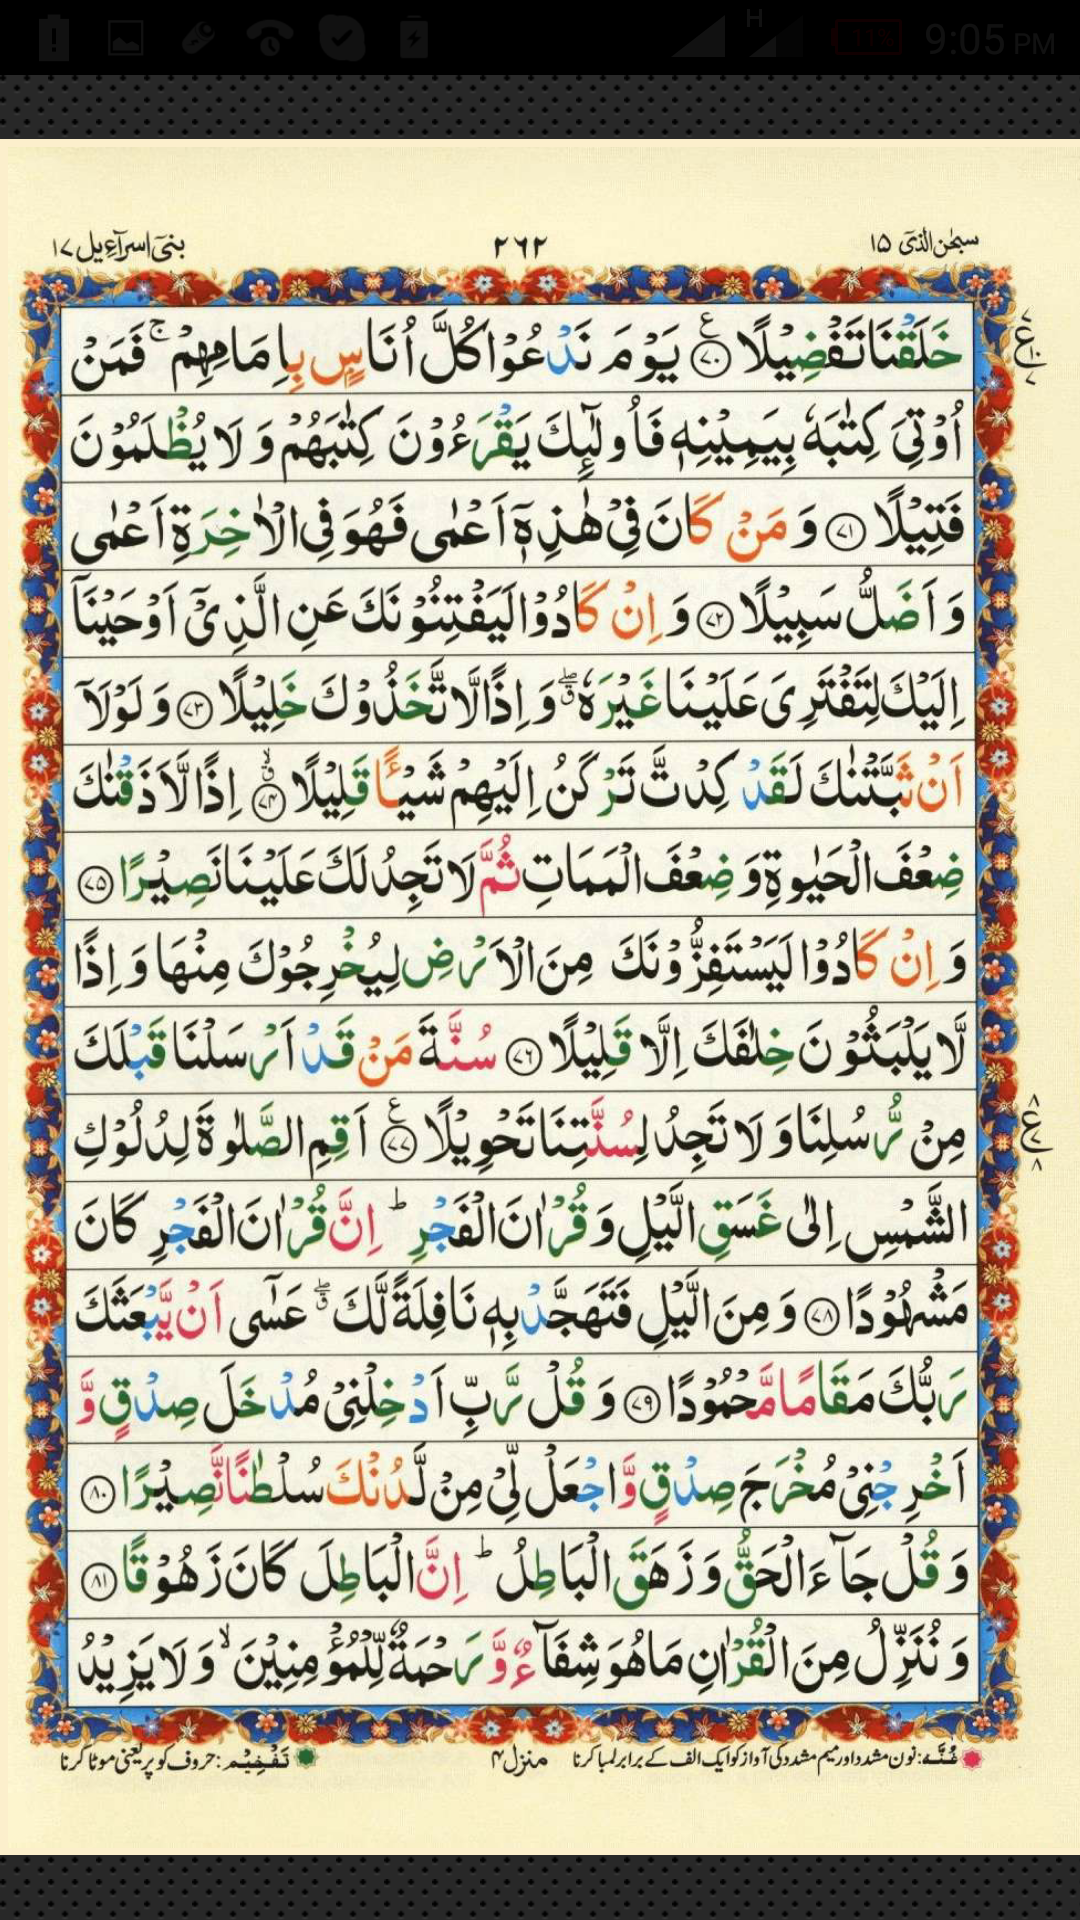 H 11% 9:05 PM
سبحٰن الذی ۱۵
۲۶۲
بنی اسرآءیل ۱۷
خَلَقْنَا تَفْضِيْلًا ﴿۷۰﴾ ع يَوْمَ نَدْعُوْا كُلَّ اُنَاسٍۭ بِاِمَامِهِمْ ۚ فَمَنْ
اُوْتِيَ كِتٰبَهٗ بِيَمِيْنِهٖ فَاُولٰٓئِكَ يَقْرَءُوْنَ كِتٰبَهُمْ وَ لَا يُظْلَمُوْنَ
فَتِيْلًا ﴿۷۱﴾ وَ مَنْ كَانَ فِيْ هٰذِهٖۤ اَعْمٰى فَهُوَ فِي الْاٰخِرَةِ اَعْمٰى
وَ اَضَلُّ سَبِيْلًا ﴿۷۲﴾ وَ اِنْ كَادُوْا لَيَفْتِنُوْنَكَ عَنِ الَّذِيْۤ اَوْحَيْنَاۤ
اِلَيْكَ لِتَفْتَرِيَ عَلَيْنَا غَيْرَهٗ ۖۗ وَ اِذًا لَّاتَّخَذُوْكَ خَلِيْلًا ﴿۷۳﴾ وَ لَوْلَاۤ
اَنْ ثَبَّتْنٰكَ لَقَدْ كِدْتَّ تَرْكَنُ اِلَيْهِمْ شَيْـًٔا قَلِيْلًا ﴿۷۴﴾ اِذًا لَّاَذَقْنٰكَ
ضِعْفَ الْحَيٰوةِ وَ ضِعْفَ الْمَمَاتِ ثُمَّ لَا تَجِدُ لَكَ عَلَيْنَا نَصِيْرًا ﴿۷۵﴾
وَ اِنْ كَادُوْا لَيَسْتَفِزُّوْنَكَ مِنَ الْاَرْضِ لِيُخْرِجُوْكَ مِنْهَا وَ اِذًا
لَّا يَلْبَثُوْنَ خِلٰفَكَ اِلَّا قَلِيْلًا ﴿۷۶﴾ سُنَّةَ مَنْ قَدْ اَرْسَلْنَا قَبْلَكَ
مِنْ رُّسُلِنَا وَ لَا تَجِدُ لِسُنَّتِنَا تَحْوِيْلًا ﴿۷۷﴾ ع اَقِمِ الصَّلٰوةَ لِدُلُوْكِ
الشَّمْسِ اِلٰى غَسَقِ الَّيْلِ وَ قُرْاٰنَ الْفَجْرِ ؕ اِنَّ قُرْاٰنَ الْفَجْرِ كَانَ
مَشْهُوْدًا ﴿۷۸﴾ وَ مِنَ الَّيْلِ فَتَهَجَّدْ بِهٖ نَافِلَةً لَّكَ ۖۗ عَسٰۤى اَنْ يَّبْعَثَكَ
رَبُّكَ مَقَامًا مَّحْمُوْدًا ﴿۷۹﴾ وَ قُلْ رَّبِّ اَدْخِلْنِيْ مُدْخَلَ صِدْقٍ وَّ
اَخْرِجْنِيْ مُخْرَجَ صِدْقٍ وَّ اجْعَلْ لِّيْ مِنْ لَّدُنْكَ سُلْطٰنًا نَّصِيْرًا ﴿۸۰﴾
وَ قُلْ جَآءَ الْحَقُّ وَ زَهَقَ الْبَاطِلُ ؕ اِنَّ الْبَاطِلَ كَانَ زَهُوْقًا ﴿۸۱﴾
وَ نُنَزِّلُ مِنَ الْقُرْاٰنِ مَا هُوَ شِفَآءٌ وَّ رَحْمَةٌ لِّلْمُؤْمِنِيْنَ ۙ وَ لَا يَزِيْدُ
غُنَّہ: نون مشدد اور میم مشدد کی آواز کو ایک الف کے برابر لمبا کرنا
منزل ۴
تَفْخِیْم: حروف کو پر یعنی موٹا کرنا
۷ ع ۱۰ ۷
۸ ع ۷ ۸